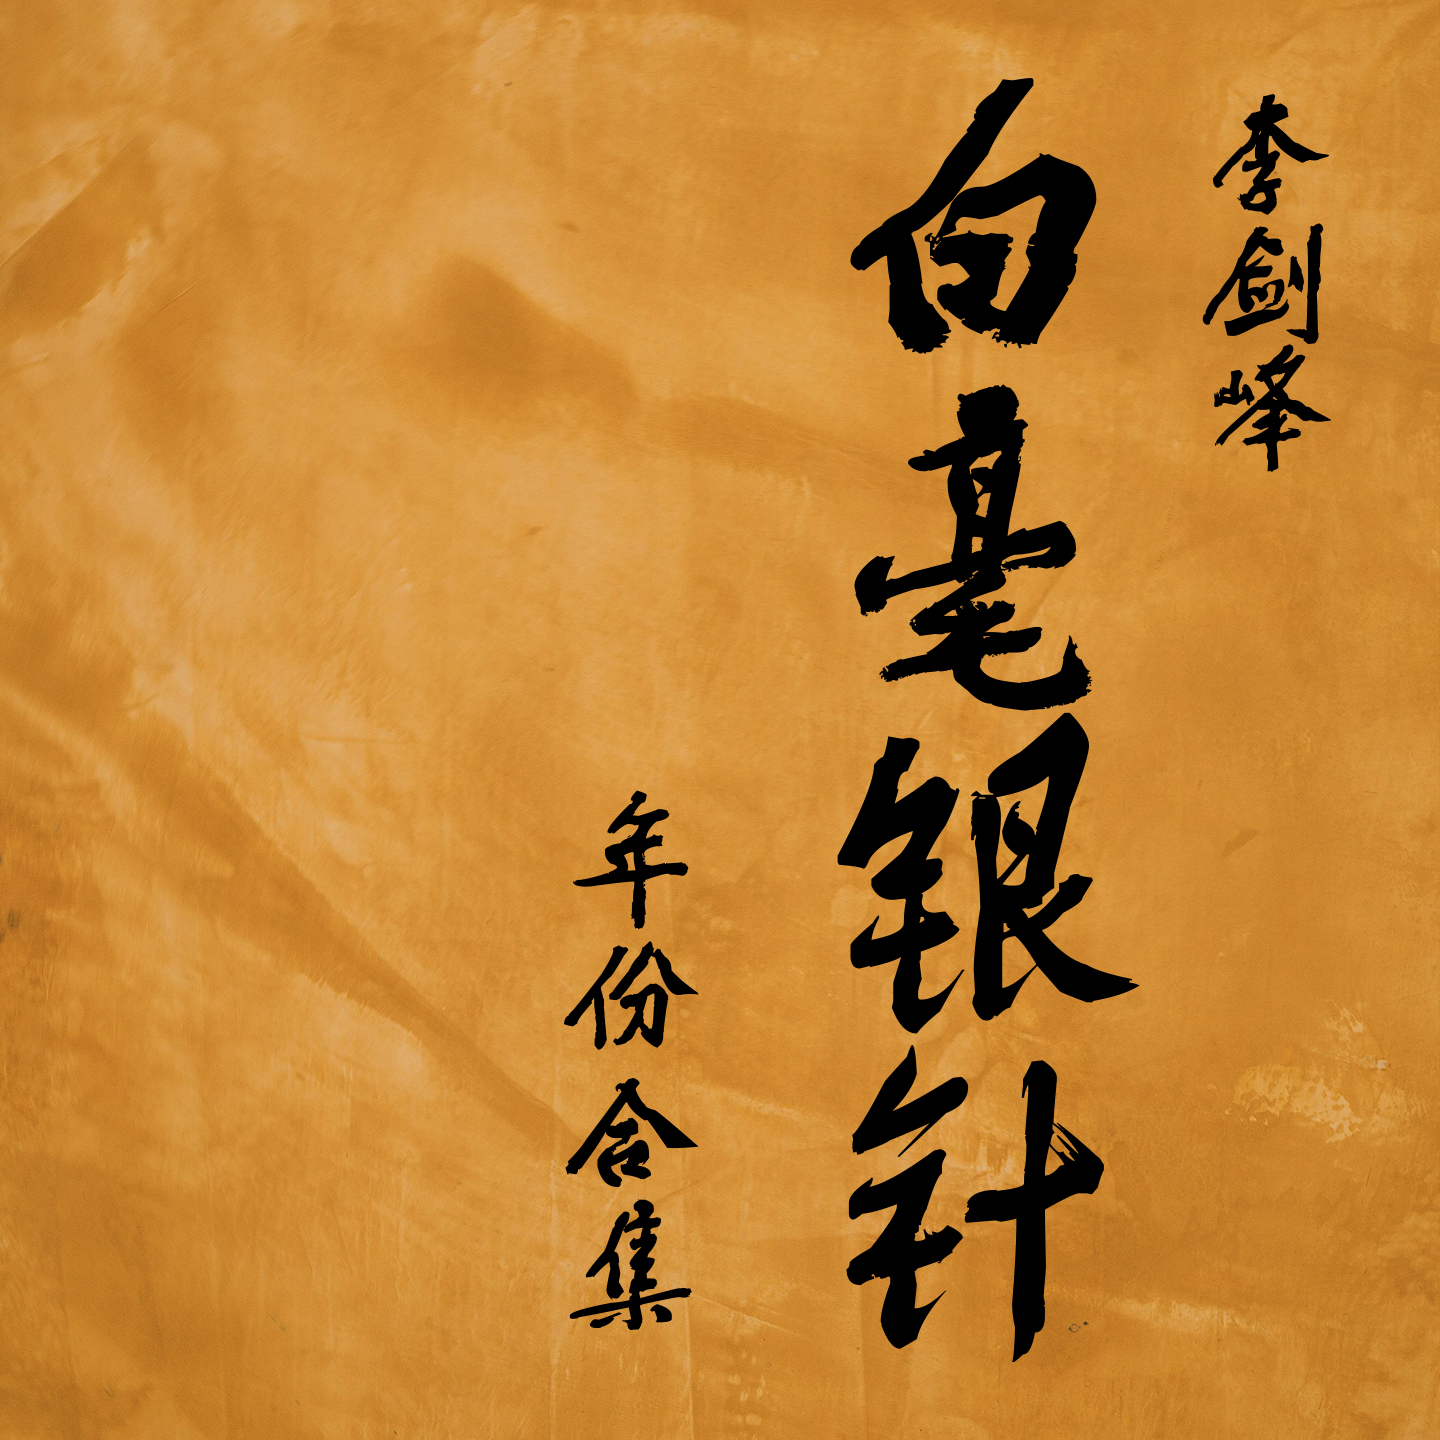 李剑峰
白毫银针
年份合集